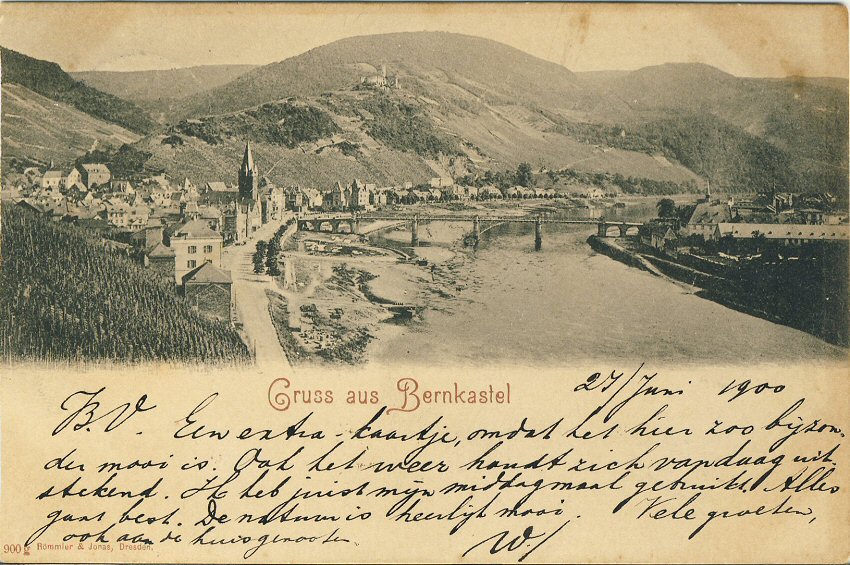 Gruss aus Bernkastel
27/Juni 1900
B.V. Een extra-kaartje, omdat het hier zoo bijzon-
der mooi is. Ook het weer houdt zich vandaag uit-
stekend. Ik heb juist mijn middagmaal gebruikt. Alles
gaat best. De natuur is heerlijk mooi. Vele groeten,
ook aan de huisgenooten.
W./
900 Römmler & Jonas, Dresden.